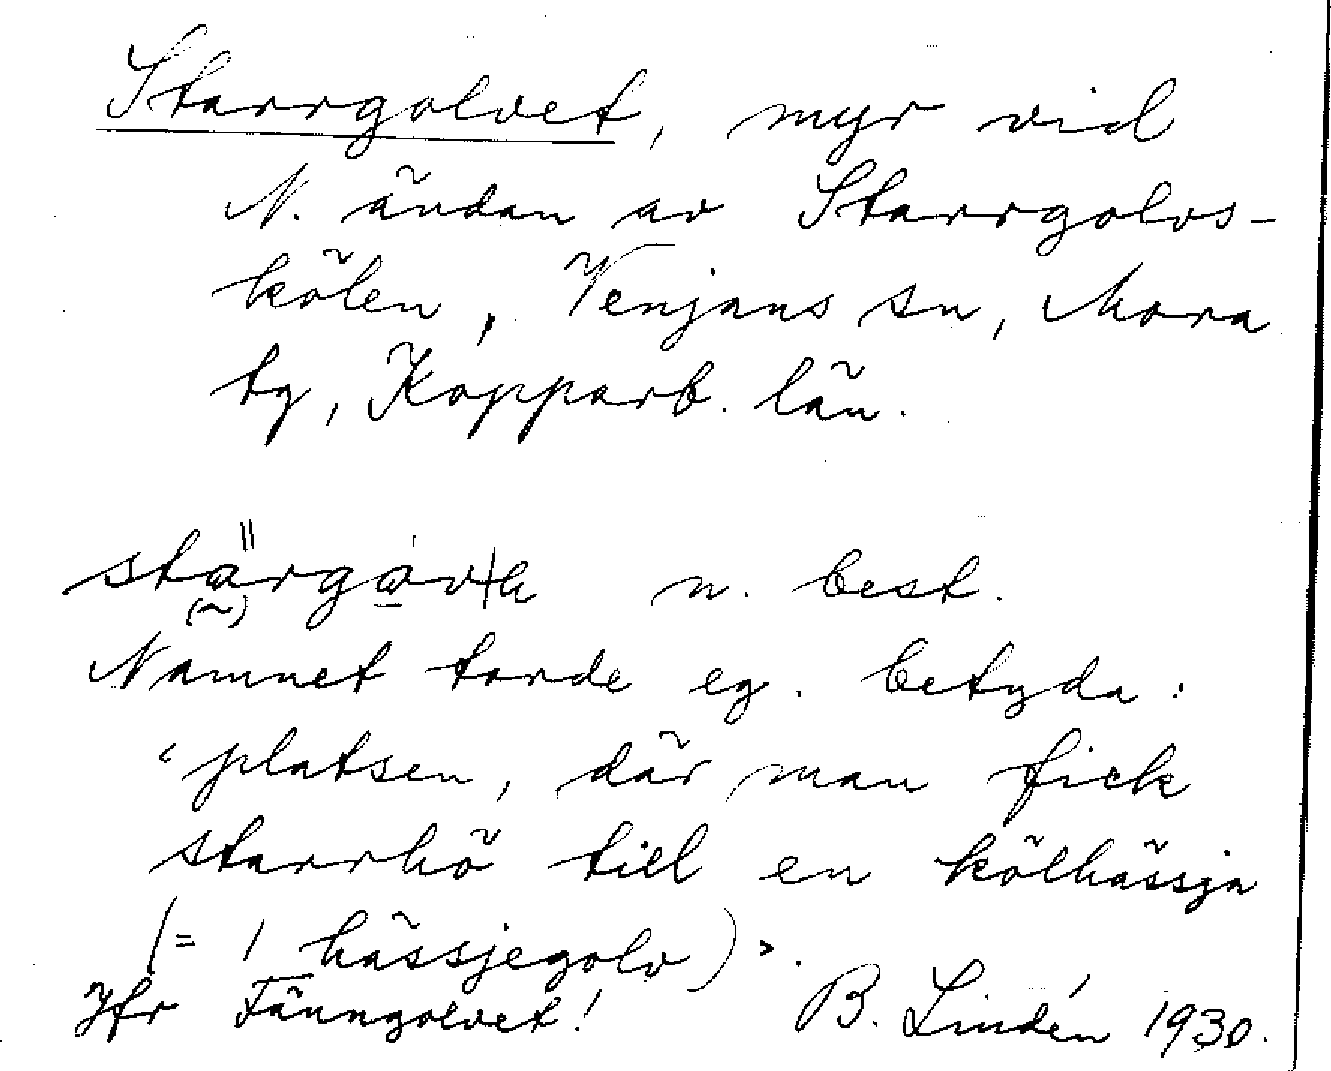 Starrgolvet, myr vid
N. ändan av Starrgolvs-
kölen, Venjans sn, Mora
tg, Kopparb. län.
n. best.
Namnet torde eg. betyda:
‘platsen, där man fick
starrhö till en kölhässja
(= 1 hässjegolv)’.
Jfr Fänngolvet!
B. Lindén 1930.